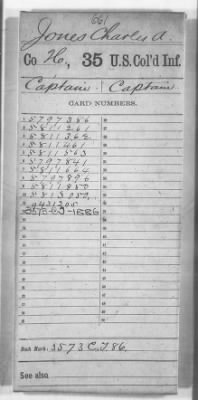 661
Jones Charles A.
Co H., 35 U.S. Col'd Inf.
Captain Captain
CARD NUMBERS.
5797386
5811261
5811362
5811461
5811563
5797841
5811664
5797896
5811850
5813050
3573-C-1886
Book Mark: 3573 C.T. 86
See also